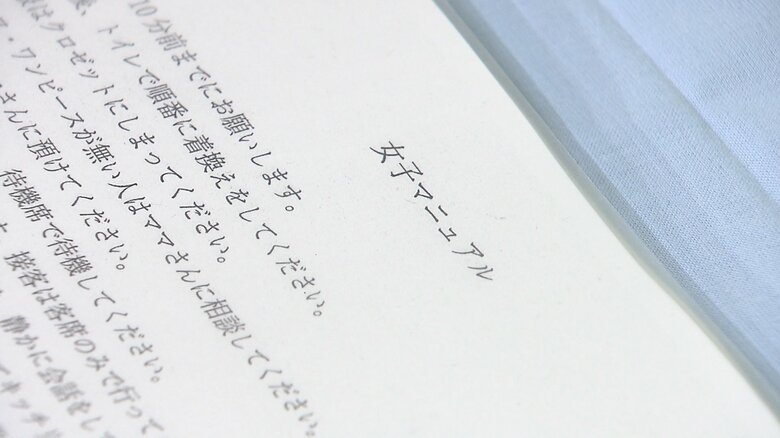 女子マニュアル
10分前までにお願いします。
、トイレで順番に着換えをしてください。
はクロゼットにしまってください。
・ワンピースが無い人はママさんに相談してください。
さんに預けてください。
待機席で待機してください。
接客は客席のみで行って
静かに会話をし
キッチ